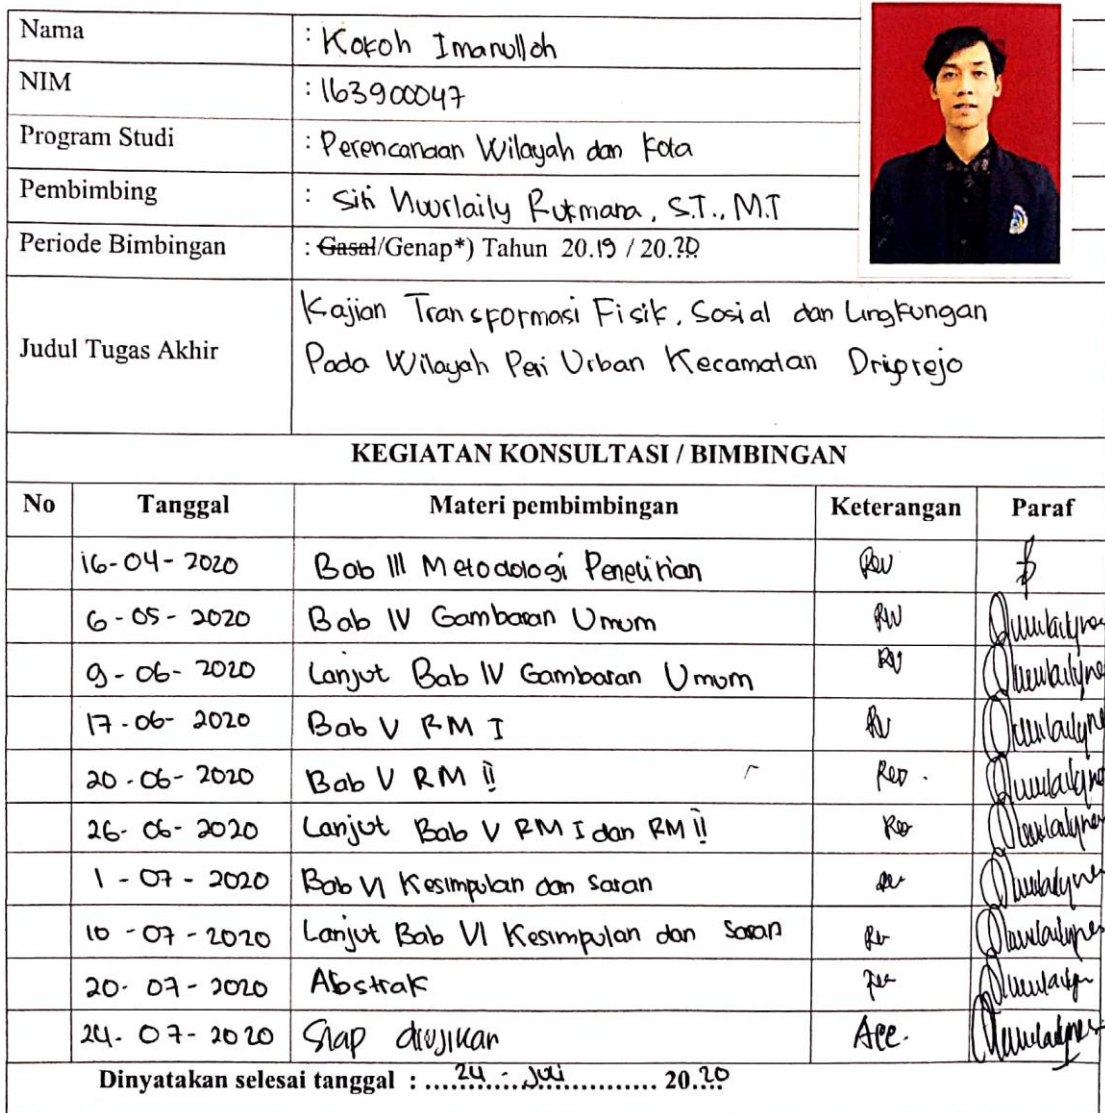 Nama : Kokoh Imanulloh
NIM : 163900047
Program Studi : Perencanaan Wilayah dan Kota
Pembimbing : Siti Nuurlaily Rukmana, S.T., M.T
Periode Bimbingan : Gasal/Genap*) Tahun 20.19 / 20.20
Judul Tugas Akhir
Kajian Transformasi Fisik, Sosial dan Lingkungan
Pada Wilayah Peri Urban Kecamatan Driyorejo
KEGIATAN KONSULTASI / BIMBINGAN
No Tanggal Materi pembimbingan Keterangan Paraf
16-04-2020 Bab III Metodologi Penelitian Rev
6-05-2020 Bab IV Gambaran Umum Rev
9-06-2020 Lanjut Bab IV Gambaran Umum Rev
17-06-2020 Bab V RM I Rev
20-06-2020 Bab V RM ii Rev.
26-06-2020 Lanjut Bab V RM I dan RM ii Rev
1-07-2020 Bab VI Kesimpulan dan Saran Rev
10-07-2020 Lanjut Bab VI Kesimpulan dan Saran Rev
20-07-2020 Abstrak Rev
24-07-2020 Siap diujikan Acc.
Dinyatakan selesai tanggal : .....24 - Juli............. 20.20